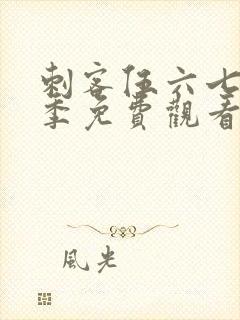 刺客伍六七
季免費觀看
風光